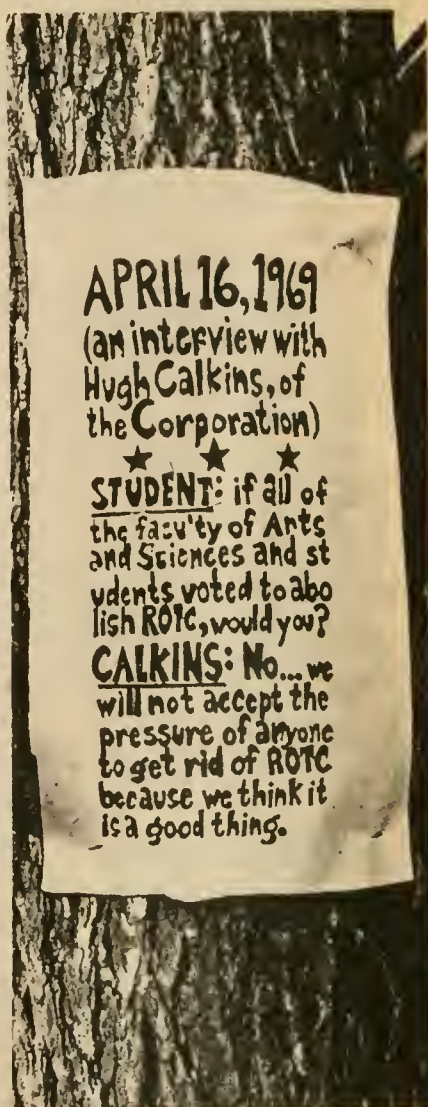 APRIL 16, 1969
(an interview with
Hugh Calkins, of
the Corporation)
★ ★ ★
STUDENT: if all of
the facu'ty of Arts
and Sciences and st
udents voted to abo
lish ROTC, would you?
CALKINS: No... we
will not accept the
pressure of anyone
to get rid of ROTC
because we think it
is a good thing.